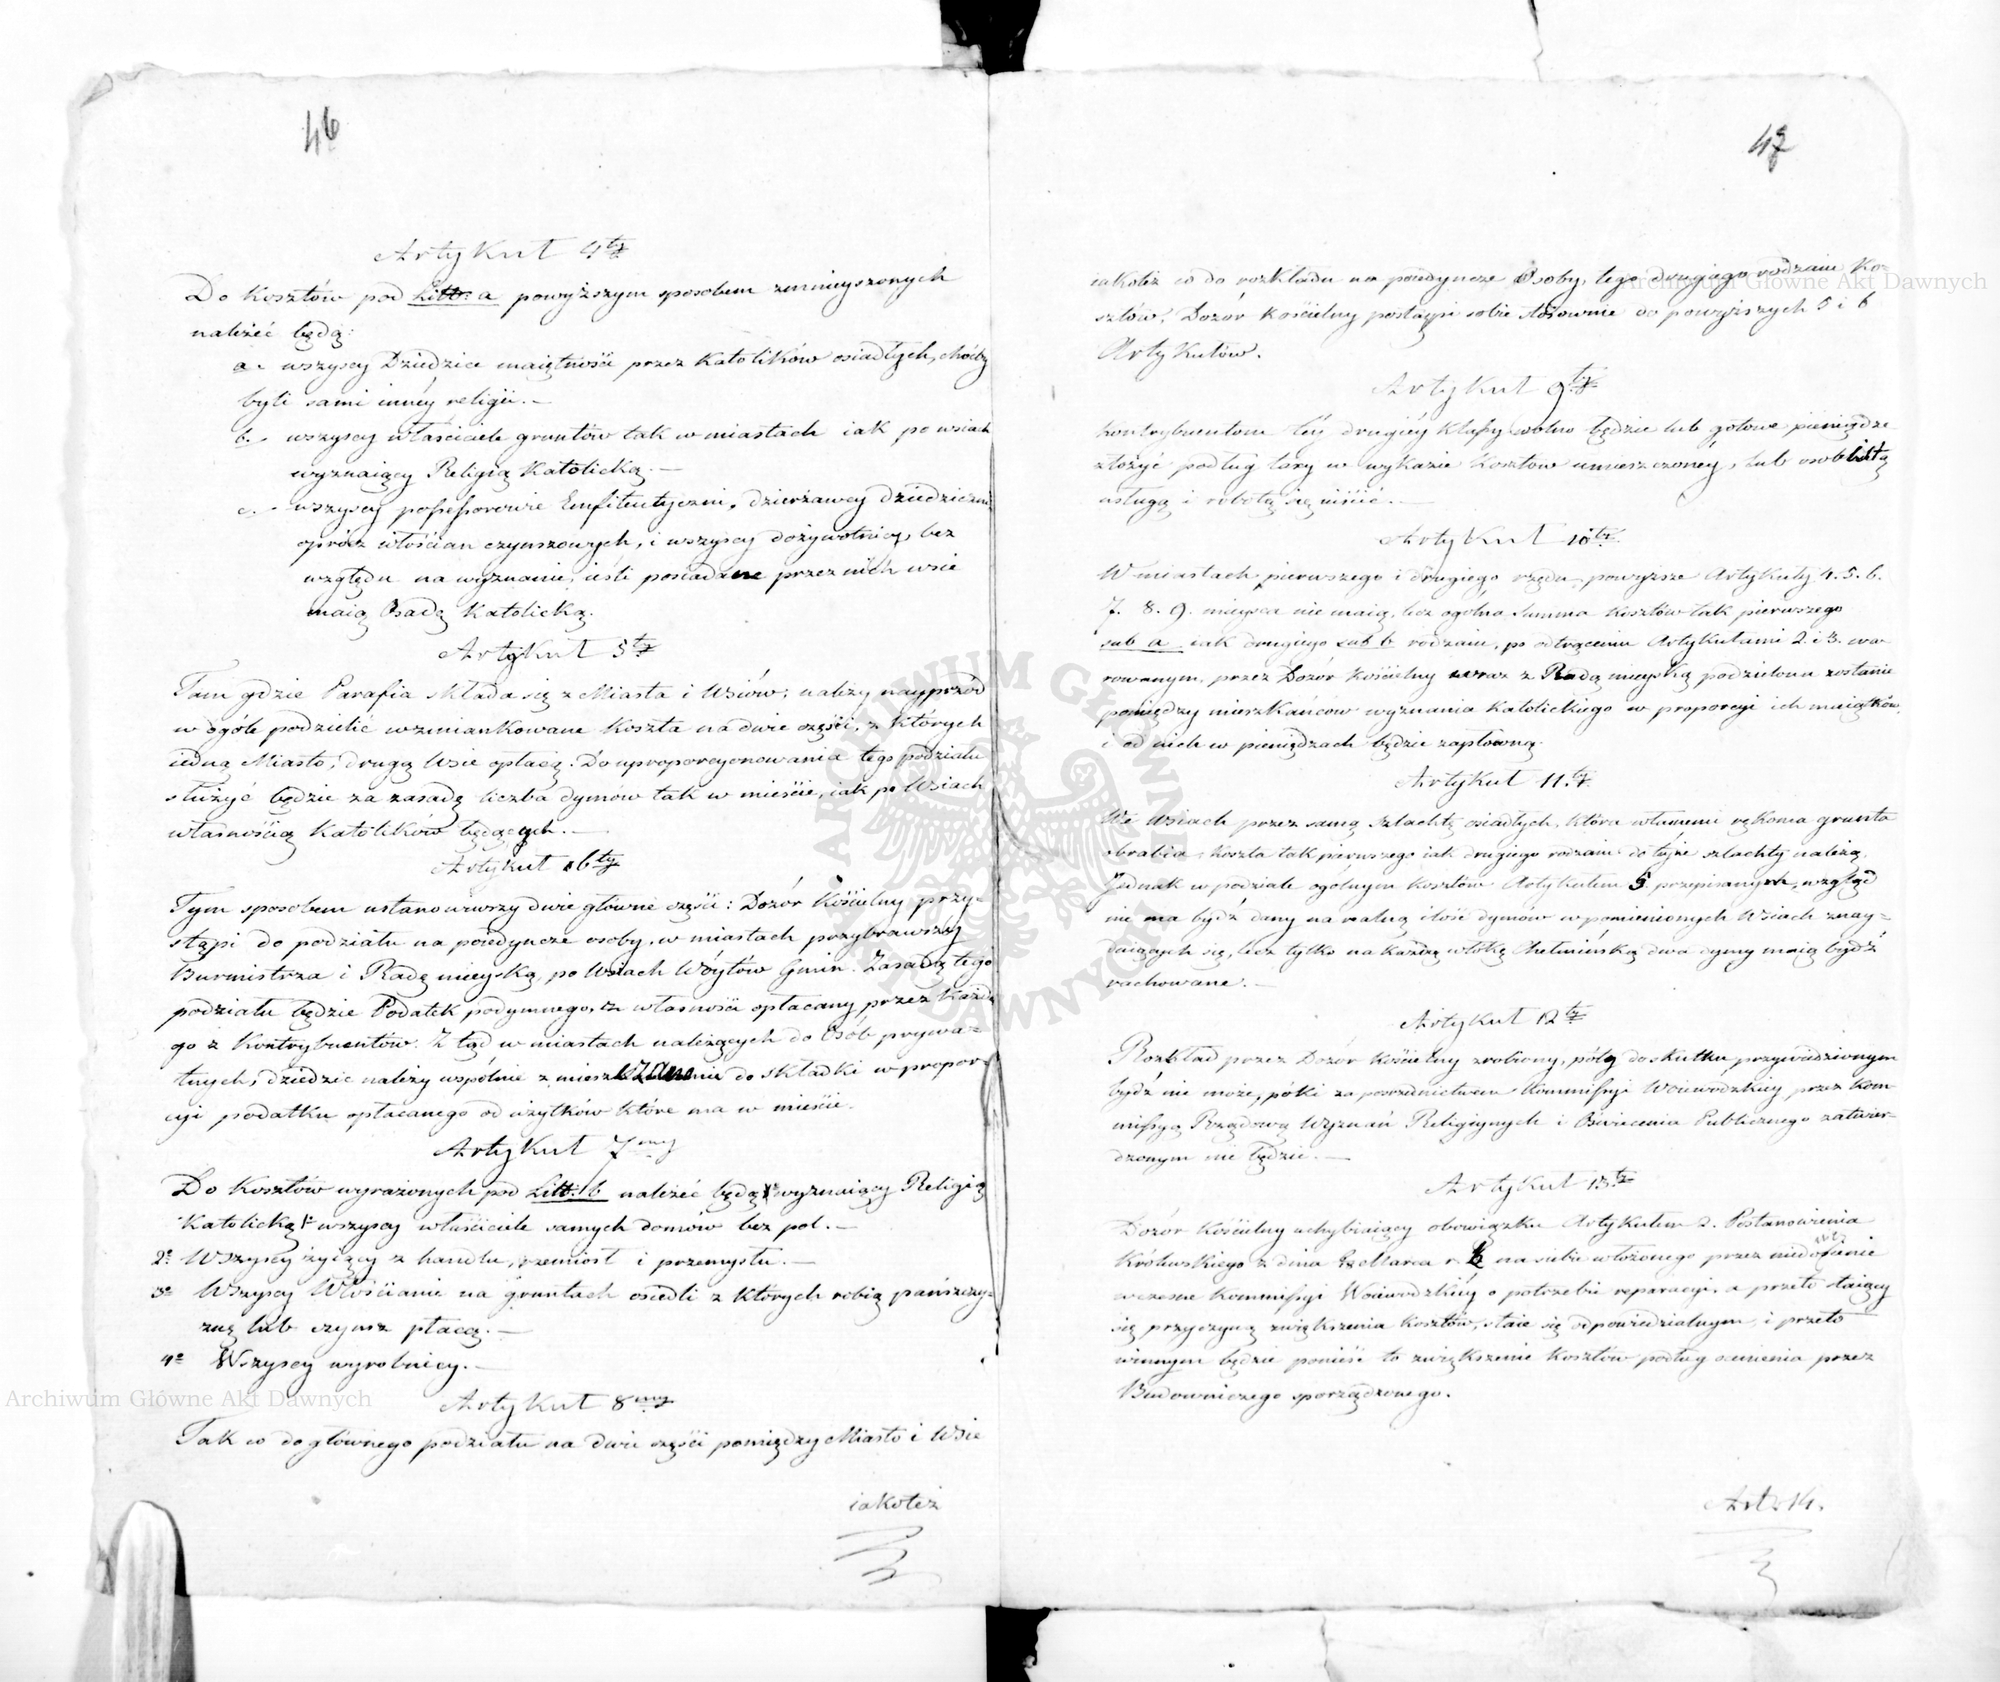 46
Artykuł 4ty
Do Kosztów pod Litt: a powyższym sposobem zmnieyszonych
należeć będą:
a. wszyscy Dziedzice maiętności przez Katolików osiadłych, choćby
byli sami innéy religii. –
b. wszyscy właściciele gruntów tak w miastach iak po wsiach
wyznaiący Religią Katolicką. –
c. wszyscy possessorowie Emfiteutyczni, dzierżawcy dziedziczni
oprócz włościan czynszowych, i wszyscy dożywotnicy, bez
względu na wyznanie, ieśli posiadane przez nich wsie
maią Osadę Katolicką.
Artykuł 5ty
Tam gdzie Parafia składa się z Miasta i Wsiów, należy nayprzód
w ogóle podzielić wzmiankowane koszta na dwie części, z których
iedną Miasto, drugą Wsie opłacą. Do uproporcyonowania tego podziału
służyć będzie za zasadę liczba dymów tak w mieście, iak po Wsiach
własnością Katolików będących. –
Artykuł 6ty
Tym sposobem ustanowiwszy dwie główne części: Dozór Kościelny przy-
stąpi do podziału na poiedyncze osoby, w miastach przybrawszy
Burmistrza i Radę mieyską, po Wsiach Wóytów Gmin. Zasadą tego
podziału będzie Podatek podymnego, z własności opłacany przez każde
go z Kontrybuentów. Ztąd w miastach należących do Osób prywa-
tnych, dziedzic należy wspólnie z mieszczanami do składki w propor-
cyi podatku opłacanego od użytków które ma w mieście.
Artykuł 7my
Do Kosztów wyrażonych pod Litt: b należeć będą wyznaiący Religią
Katolicką 1º wszyscy właściciele samych domów bez pol. –
2º Wszyscy żyiący z handlu, rzemiosł i przemysłu. –
3º Wszyscy Włościanie na gruntach osiedli z których robią pańszczy-
znę lub czynsz płacą. –
4º Wszyscy wyrobnicy. –
Artykuł 8my
Tak co do głównego podziału na dwie części pomiędzy Miasto i Wsie
iakoteż
47
iakoteż co do rozkładu na poiedyncze Osoby, tego drugiego rodzaiu Ko-
sztów, Dozór Kościelny postąpi sobie stosownie do powyższych 5 i 6
Artykułów.
Artykuł 9ty
Kontrybuentom téy drugiéy Klassy wolno będzie lub gotowe pieniądze
złożyć podług taxy w wykazie Kosztów umieszczonéy, lub osobistą
usługą i robotą się uiścić. –
Artykuł 10ty
W miastach pierwszego i drugiego rzędu, powyższe Artykuły 4. 5. 6.
7. 8. 9. mieysca nie maią, lecz ogólna Summa Kosztów tak pierwszego
sub a iak drugiego sub b rodzaiu, po odtrąceniu Artykułami 2 i 3. wa-
rowanym, przez Dozór Kościelny wraz z Radą mieyską podzielona zostanie
pomiędzy mieszkańców wyznania Katolickiego w proporcyi ich maiątków,
i od nich w pieniądzach będzie zapłóconą.
Artykuł 11.ty
We Wsiach przez samą Szlachtę osiadłych, która własnemi rękoma grunta
obrabia, Koszta tak pierwszego iak drugiego rodzaiu do téyże szlachty należą.
Jednak w podziale ogólnym Kosztów Artykułem 5 przepisanych, wzgląd
nie ma bydź dany na realną ilość dymów w pomienionych Wsiach znay-
duiących się, lecz tylko na każdą włókę Chełmińską dwa dymy maią bydź
rachowane. –
Artykuł 12ty
Rozkład przez Dozór Kościelny zrobiony, póty do skutku przywiedzionym
bydź nie może, póki za pośrednictwem Kommissyi Woiewódzkiey przez Kom-
missyą Rządową Wyznań Religiynych i Oświecenia Publicznego zatwier-
dzonym nie będzie. –
Artykuł 13ty
Dozór Kościelny uchybiaiący obowiązku Artykułem 2. Postanowienia
Królewskiego z dnia Marca r. b. na siebie włożonego przez niedoniesienie
wczesne Kommissyi Woiewódzkiéy o potrzebie reparacyi, a przeto staiący
się przyczyną zwiększenia Kosztów, staie się odpowiedzialnym i przeto
winnym będzie ponieść to zwiększenie Kosztów podług ocenienia przez
Budowniczego sporządzonego.
Artyk.
Archiwum Główne Akt Dawnych
Archiwum Główne Akt Dawnych
ARCHIWUM GŁÓWNE AKT DAWNYCH